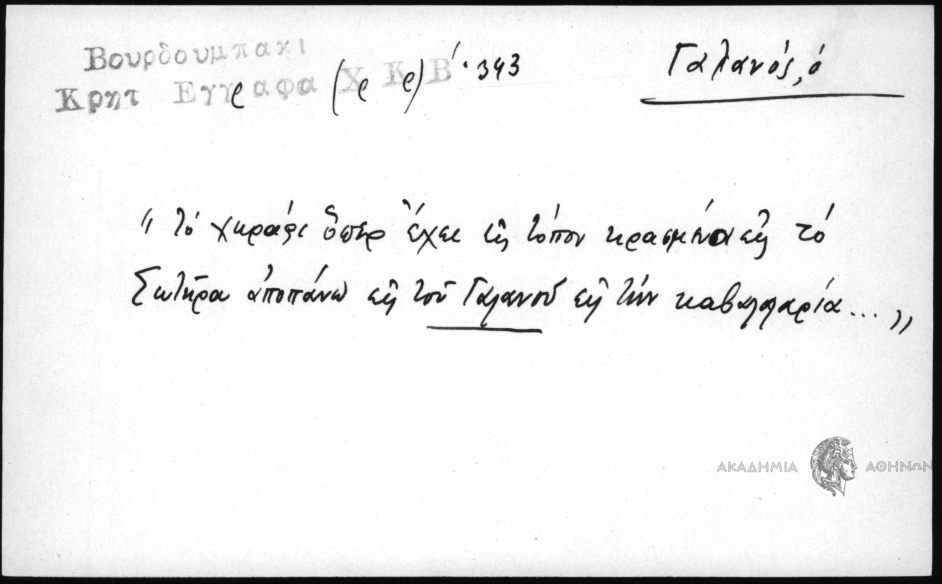 Βουρδουμπακι
Κρητ Εγγραφα (Χ Κ) Β΄. 343
Γαλανός, ὁ
"τό χωράφι ὅπερ ἔχει εἰς τόπον κρασμένα εἰς τό
Σωτῆρα ἀποπάνω εἰς τοῦ Γαλανοῦ εἰς τήν καβαλλαρία... "
ΑΚΑΔΗΜΙΑ ΑΘΗΝΩΝ